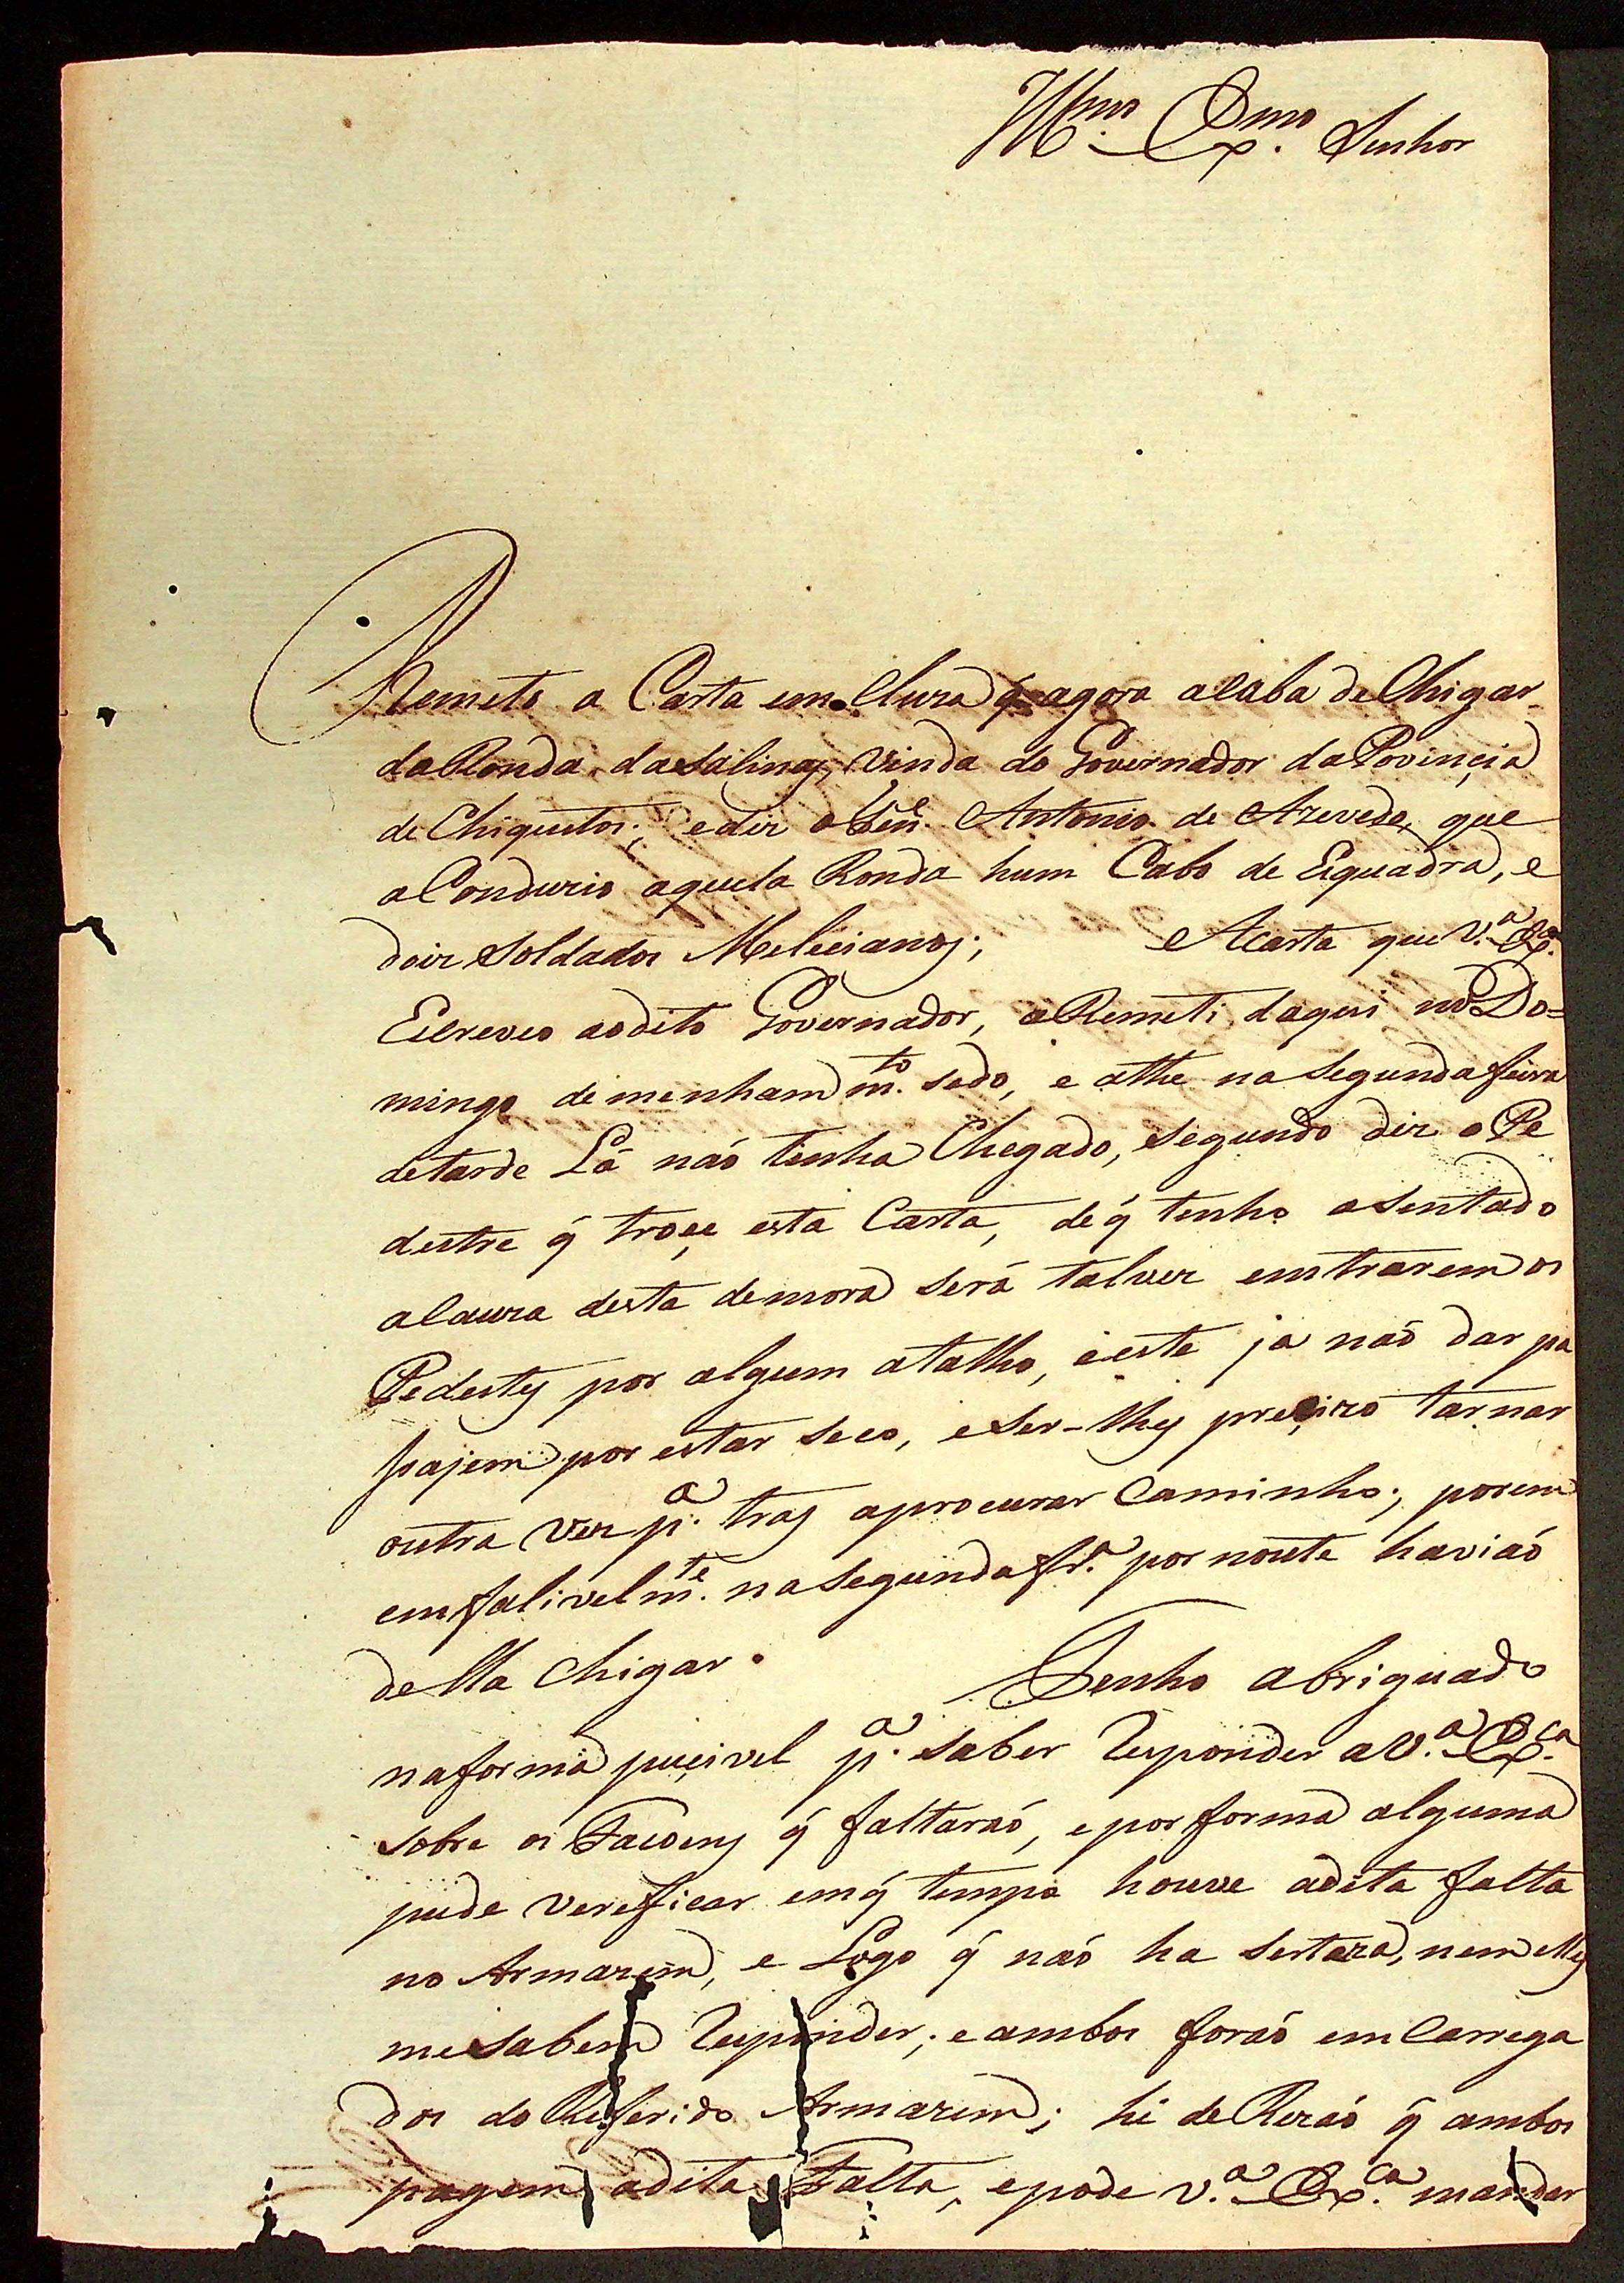 Illmo. Exmo. Senhor
Remeto a Carta em Cluza q agora acaba de Chigar
da Ronda, da Salinas, Vinda do Governador da Povinçia
de Chiquitos; e diz o Ten.e Antonio de Azevedo, que
a Conduzio aquela Ronda hum Cabo de Esquadra, e
doiz Soldados Melicianos; A carta que V.a Ex.a
Escreveo ao dito Governador, a Remeti daqui no Do=
mingo de menham m.to sedo, e athe na Segunda feira
de tarde Lá náo tinha Chegado, segundo diz o Pe
destre q́ troçe esta Carta, de q́ tenho asentado
a Cauza desta demora será talvez emtrarem os
Pedestes por algum atalho, e este ja náo dar pa
sajem por estar seco, e Ser-lhes preçizo tarnar
outra vez p.a tras aprocurar Caminho; porem
emfalivelm.te na Segunda fr.a por noute haviáo
de lla chigar. Tenho abriguado
na forma puçivel p.a saber Responder a V.a Ex.ca
sobre os Facoens q́ faltaráo, e por forma alguma
pude vereficar em q́ tempo houve adita falta
no Armazem, e Logo q́ náo ha serteza, nem elles
me sabem Responder; e ambos foráo em Carrega
dos do Referido Armazem; hé de Rezáo q́ ambos
pagem adita Falta, e pode V.a Ex.ca mandar